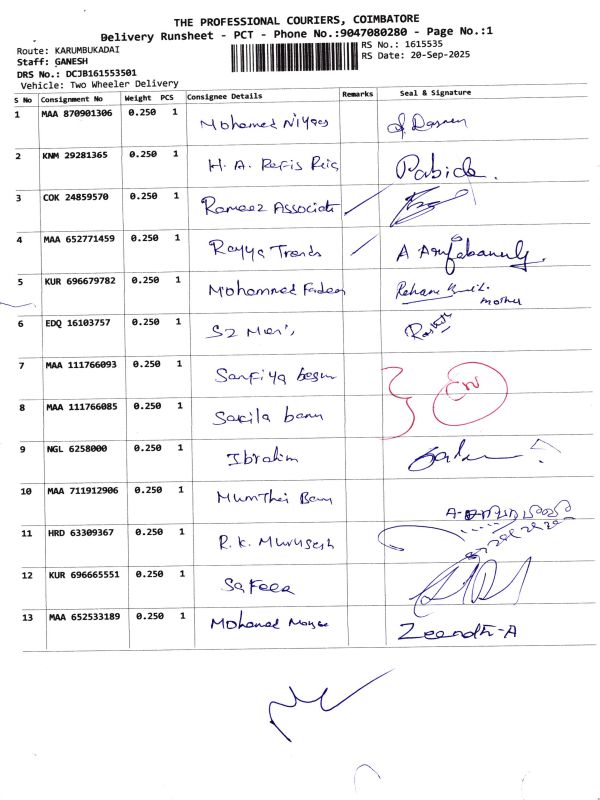 THE PROFESSIONAL COURIERS, COIMBATORE
Delivery Runsheet - PCT - Phone No.:9047080280 - Page No.:1
Route: KARUMBUKADAI
RS No.: 1615535
Staff: GANESH
RS Date: 20-Sep-2025
DRS No.: DCJB161553501
Vehicle: Two Wheeler Delivery
S No Consignment No Weight PCS Consignee Details Remarks Seal & Signature
1 MAA 870901306 0.250 1 Mohamed Niyas
2 KNM 29281365 0.250 1 H. A. Refis Pabida.
3 COK 24859570 0.250 1 Rameez Associate
4 MAA 652771459 0.250 1 Rayya Trends A
5 KUR 696679782 0.250 1 Mohammed mother
6 EDQ 16103757 0.250 1 S2
7 MAA 111766093 0.250 1 Sanfiya begum
8 MAA 111766085 0.250 1 Sakila banu
9 NGL 6258000 0.250 1 Ibrahim
10 MAA 711912906 0.250 1
11 HRD 63309367 0.250 1 R. K. Murugesh
12 KUR 696665551 0.250 1 Safeer
13 MAA 652533189 0.250 1 Mohamed